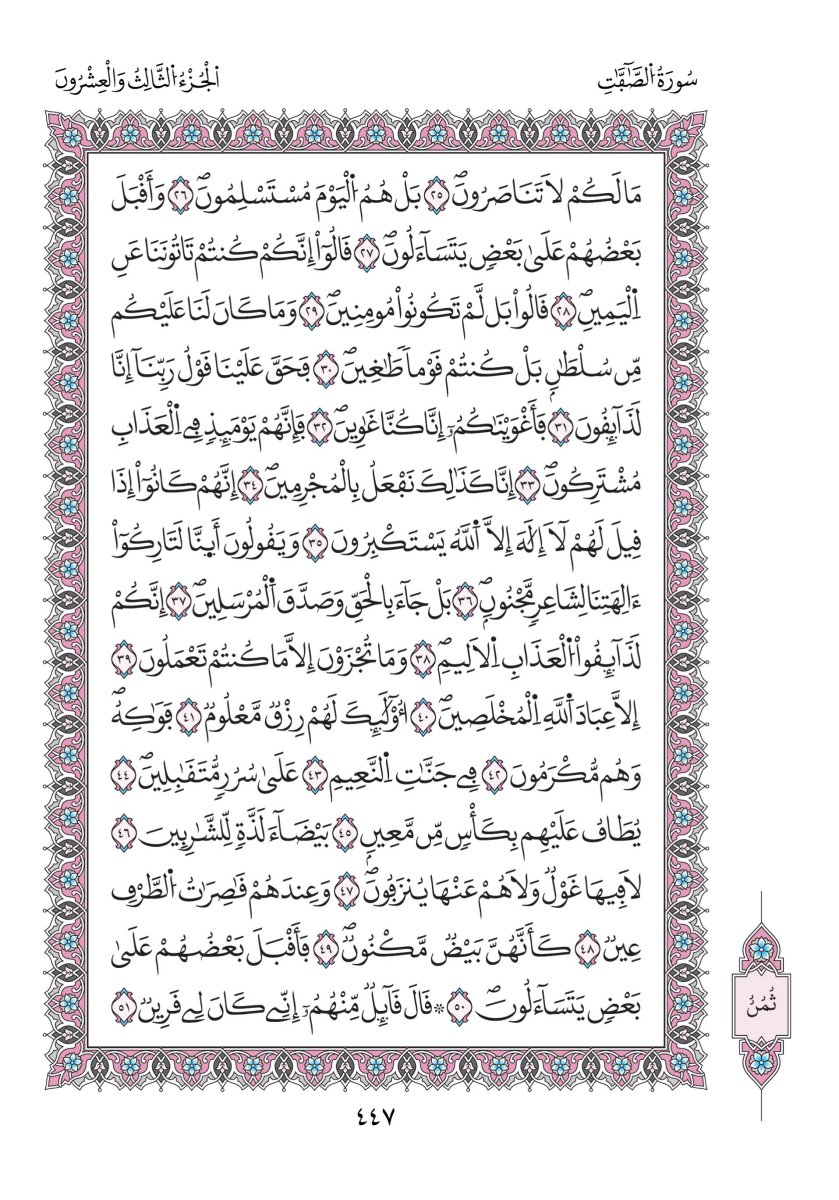 سُورَةُ اُ۬لصَّٰٓفَّٰتِ
اَ۬لْجُزْءُ اُ۬لثَّالِثُ وَالْعِشْرُونَ
مَا لَكُمْ لَا تَنَاصَرُونَۖ ٢٥ بَلْ هُمُ اُ۬لْيَوْمَ مُسْتَسْلِمُونَۖ ٢٦ وَأَقْبَلَ
بَعْضُهُمْ عَلَىٰ بَعْضٖ يَتَسَآءَلُونَۖ ٢٧ قَالُوٓاْ إِنَّكُمْ كُنتُمْ تَاتُونَنَا عَنِ
اِ۬لْيَمِينِۖ ٢٨ قَالُواْ بَل لَّمْ تَكُونُواْ مُومِنِينَۖ ٢٩ وَمَا كَانَ لَنَا عَلَيْكُم
مِّن سُلْطَٰنِۢ بَلْ كُنتُمْ قَوْماٗ طَٰغِينَۖ ٣٠ فَحَقَّ عَلَيْنَا قَوْلُ رَبِّنَآ إِنَّا
لَذَآئِقُونَ ٣١ فَأَغْوَيْنَٰكُمُۥٓ إِنَّا كُنَّا غَٰوِينَۖ ٣٢ فَإِنَّهُمْ يَوْمَئِذٖ فِے اِ۬لْعَذَابِ
مُشْتَرِكُونَۖ ٣٣ إِنَّا كَذَٰلِكَ نَفْعَلُ بِالْمُجْرِمِينَۖ ٣٤ إِنَّهُمْ كَانُوٓاْ إِذَا
قِيلَ لَهُمْ لَآ إِلَٰهَ إِلَّا اَ۬للَّهُ يَسْتَكْبِرُونَ ٣٥ وَيَقُولُونَ أَئِنَّا لَتَارِكُوٓاْ
ءَالِهَتِنَا لِشَاعِرٖ مَّجْنُونِۢۖ ٣٦ بَلْ جَآءَ بِالْحَقِّ وَصَدَّقَ اَ۬لْمُرْسَلِينَۖ ٣٧ إِنَّكُمْ
لَذَآئِقُواْ اُ۬لْعَذَابِ اِ۬لَالِيمِۖ ٣٨ وَمَا تُجْزَوْنَ إِلَّا مَا كُنتُمْ تَعْمَلُونَ ٣٩
إِلَّا عِبَادَ اَ۬للَّهِ اِ۬لْمُخْلَصِينَۖ ٤٠ أُوْلَٰٓئِكَ لَهُمْ رِزْقٞ مَّعْلُومٞ ٤١ فَوَٰكِهُۖ
وَهُم مُّكْرَمُونَ ٤٢ فِے جَنَّٰتِ اِ۬لنَّعِيمِ ٤٣ عَلَىٰ سُرُرٖ مُّتَقَٰبِلِينَۖ ٤٤
يُطَافُ عَلَيْهِم بِكَأْسٖ مِّن مَّعِينِۢ ٤٥ بَيْضَآءَ لَذَّةٖ لِّلشَّٰرِبِينَ ٤٦
لَا فِيهَا غَوْلٞ وَلَا هُمْ عَنْهَا يُنزَفُونَۖ ٤٧ وَعِندَهُمْ قَٰصِرَٰتُ اُ۬لطَّرْفِ
عِينٞ ٤٨ كَأَنَّهُنَّ بَيْضٞ مَّكْنُونٞۖ ٤٩ فَأَقْبَلَ بَعْضُهُمْ عَلَىٰ
بَعْضٖ يَتَسَآءَلُونَۖ ٥٠ ۞ قَالَ قَآئِلٞ مِّنْهُمُۥٓ إِنِّے كَانَ لِے قَرِينٞ ٥١
ثُمُنُ
٤٤٧